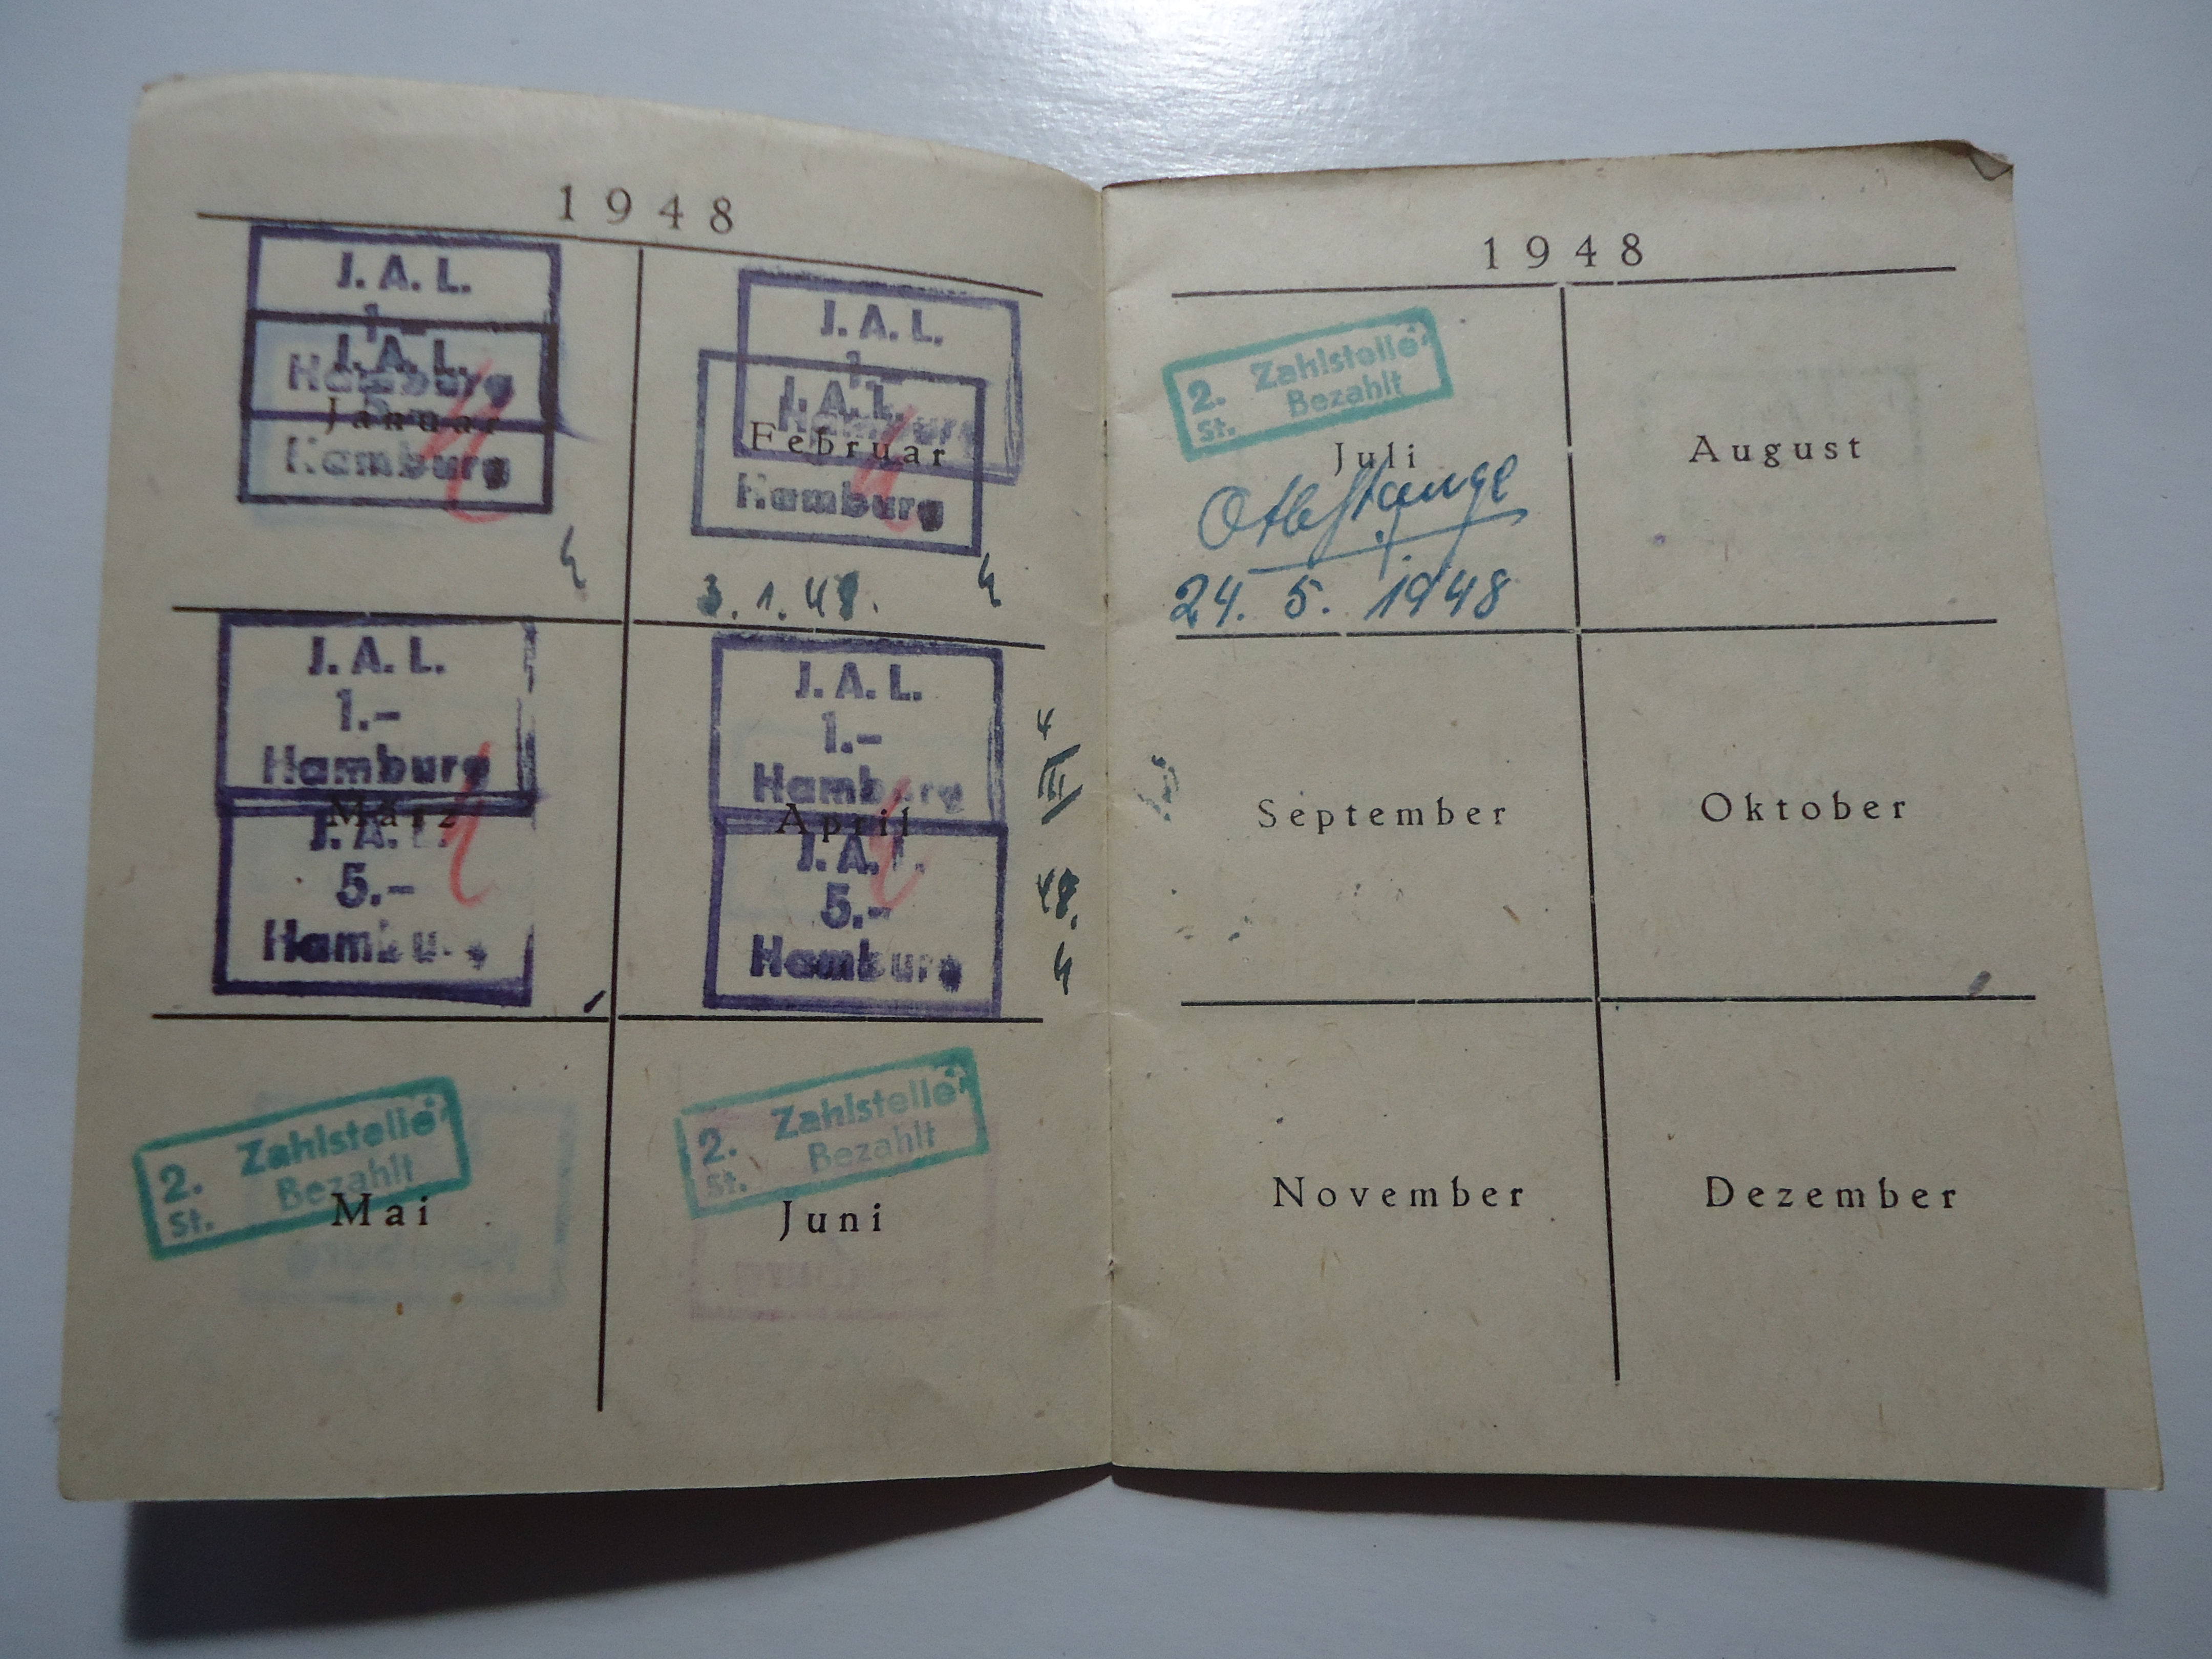 1948
J. A. L.
1.-
Hamburg
J. A. L.
Hamburg
Januar
J. A. L.
1.-
Hamburg
J. A. L.
Hamburg
Februar
3. 1. 48.
J. A. L.
1.-
Hamburg
März
J. A. L.
5.-
Hamburg
J. A. L.
1.-
Hamburg
April
J. A. L.
5.-
Hamburg
4
III
48.
2. Zahlstelle
St. Bezahlt
Mai
2. Zahlstelle
St. Bezahlt
Juni
1948
2. Zahlstelle
St. Bezahlt
Juli
24. 5. 1948
August
September
Oktober
November
Dezember